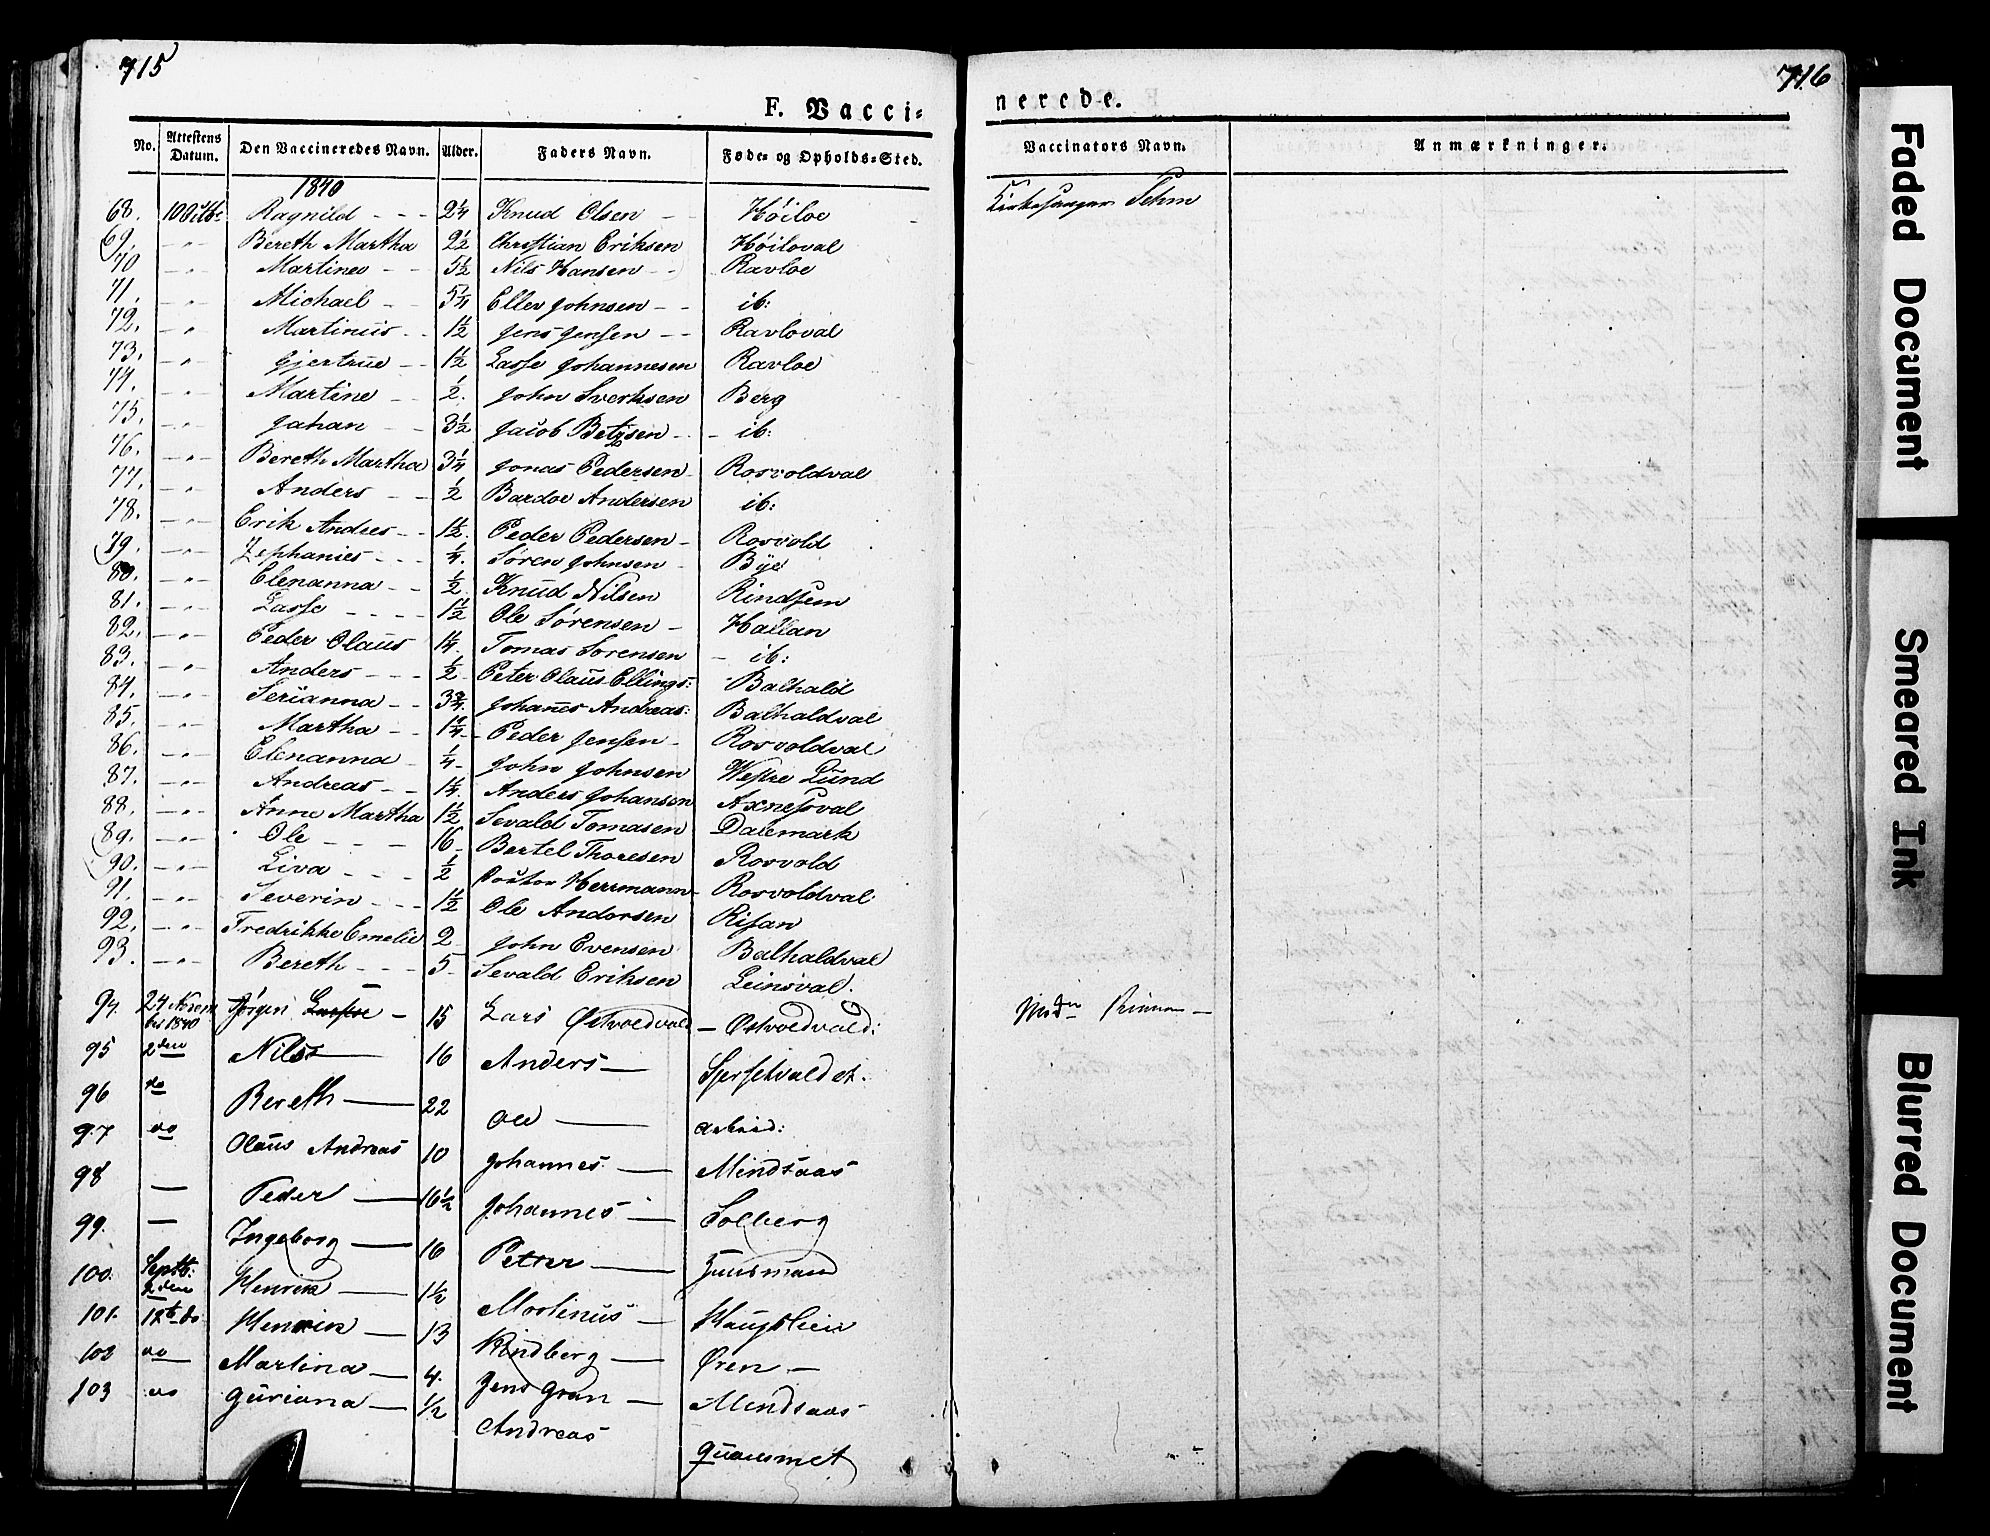 715
716
F. Vacci-
nerede.
No. Attestens Datum. Den Vaccineredes Navn. Alder. Faders Navn. Føde- og Opholds-Sted. Vaccinators Navn. Anmærkninger.
1840
68. 10 Octb: Ragnild - - - 2¼ Knud Olsen - Høiloe Kirkesanger Sehm
69. -"- Bereth Martha 2½ Christian Eriksen Høiloval
70 -"- Martines - - 5½ Nils Hansen - - Ravloe
71. -"- Michael - - 5¼ Eller Johnsen - - ib:
72. -"- Martinus - - 1½ Jens Jensen - - Ravloval
73. -"- Gjertrue - - 1½ Lasse Johannesen Ravloe
74. -"- Martine - - ½. John Sverksen Berg
75. -"- Johan - - 3½ Jacob Betzsen - - ib:
76. -"- Bereth Martha 3¼ Jonas Pedersen Rosvoldval
77. -"- Anders - - ½ Bardoe Andersen ib:
78. -"- Erik Andres - - 1½. Peder Pedersen - Rosvold
79. -"- Zephanies - - - ¼. Søren Johnsen - Bye
80. -"- Elenanna - - ½ Knud Nilsen Rindsem
81. -"- Lasse - - - - 1½ Ole Sørensen - Hallan
82. -"- Peder Olaus 1¼. Tomas Sorensen - ib:
83. -"- Anders - - - ½ Peter Olaus Ellings: Balhald
84. -"- Serianna - - 3¾. Johanes Andreas: Balhaldval
85. -"- Martha - - 1¼ - Peder Jensen - Rosvoldval
86. -"- Elenanna - ¼ - John Johnsen Westre Lund
87. -"- Andreas - - 1¼. Anders Johansen Axnessval
88. -"- Anne Martha 1½ Sevald Tomasen Dalemark
89. -"- Ole - - - 16 - Bertel Thoresen Rosvold
90. -"- Liva - - - ½ Herrmann - Rosvoldval
91. -"- Severin - - - 1½ Ole Andorsen Risan
92. -"- Fredrikke Emelie 2 John Evensen Balhaldval
93. -"- Bereth - - - 5 - Sevald Eriksen Leinsval.
94. 24 Novem ber 1840 Jørgen - 15 Lars Østvoldvald - Østvoldvald:
95 2den Nils 16 Anders -
96 do Bereth - 22 Ole -
97 do Olaus Andreas 10 Johannes - Mindsaas
98 - Peder - 16½ Johannes - Solberg
99. - Ingeborg - 16 Petter - Huusmand
100. Septb: 2den Henrik - 1½ Martinus - Haugslien
101. 12te do Henrik - 13 Rindberg - Øren -
102 do Martina - 4. Jens Gran - Mindsaas
103 do Guriana - ½ Andreas